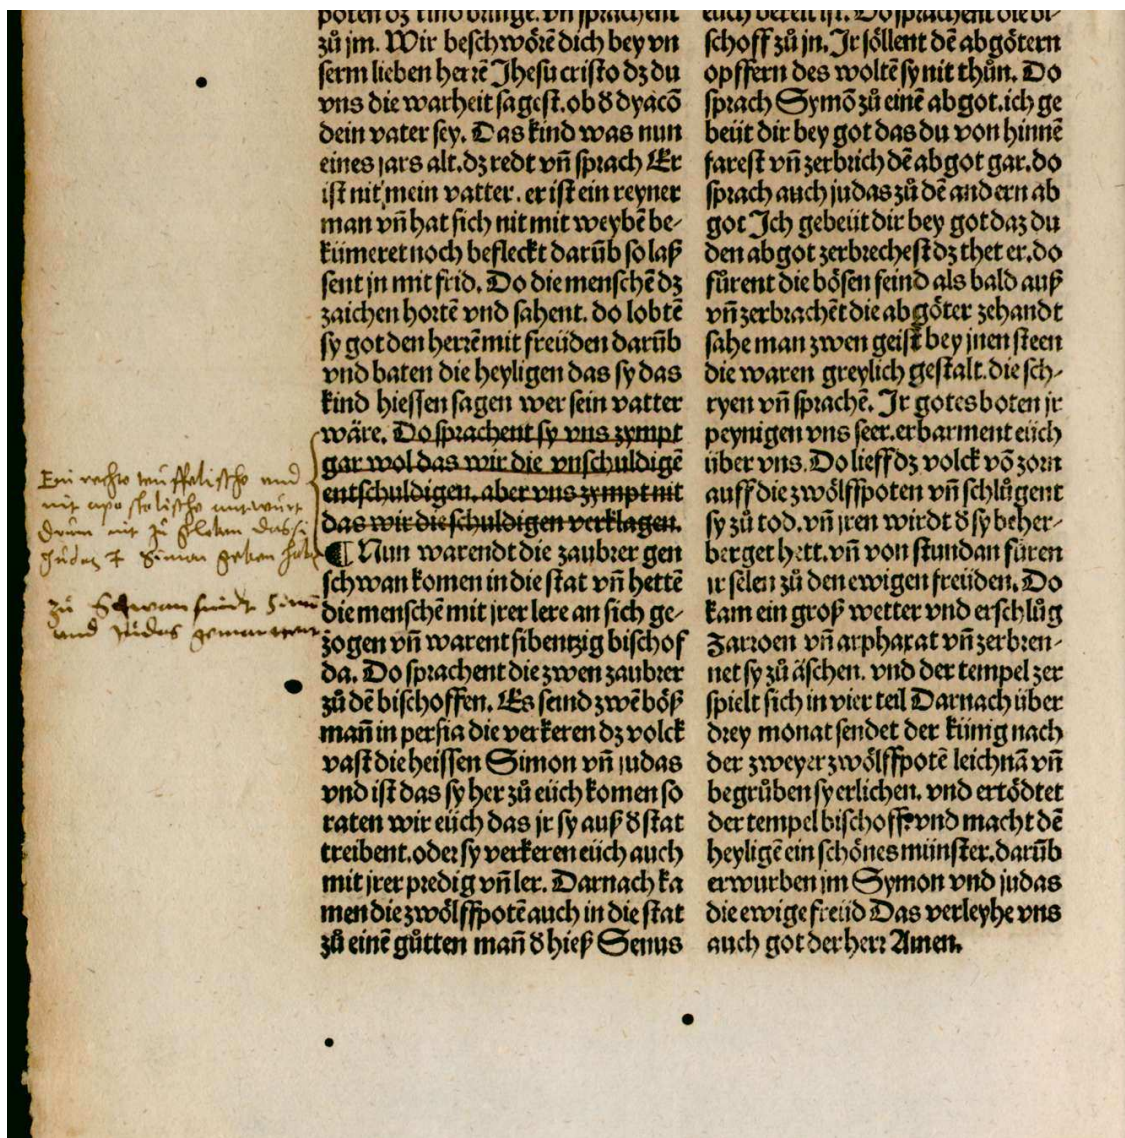 zů jm. Wir beschwörẽ dich bey vn
serm lieben herrẽ Jhesu cristo dz du
vns die warheit sagest. ob d dyacõ
dein vater sey. Das kind was nun
eines jars alt. dz redt vñ sprach Er
ist nit mein vatter. er ist ein reyner
man vñ hat sich nit mit weybẽ be⸗
kümeret noch befleckt darũb so laß
sent jn mit frid. Do die menschẽ dz
zaichen hortẽ vnd sahent. do lobtẽ
sy got den herrẽ mit freüden darũb
vnd baten die heyligen das sy das
kind hiessen sagen wer sein vatter
wäre. Do sprachent sy vns zympt
gar wol das wir die vnschuldigẽ
entschuldigen. aber vns zympt nit
das wir die schuldigen verklagen.
¶ Nun warendt die zaubrer gen
schwan komen in die stat vñ hettẽ
die menschẽ mit jrer lere an sich ge⸗
zogen vñ warent sibentzig bischof
da. Do sprachent die zwen zaubrer
zů dẽ bischoffen. Es seind zwẽ böß
mañ in persia die verkeren dz volck
vast die heissen Simon vñ judas
vnd ist das sy her zů eüch komen so
raten wir eüch das jr sy auß d stat
treibent. oder sy verkeren eüch auch
mit jrer predig vñ ler. Darnach ka
men die zwölffpotẽ auch in die stat
zů einẽ gůtten mañ d hieß Senus
Ein rechte teuffelische und
nit apostolische antwurt
drum nit zu globen das si
Judas & Simon geben hab
zu Schwan sindt Simõ
und Judas gemartert
schoff zů jn. Jr söllent dẽ abgötern
opffern des woltẽ sy nit thůn. Do
sprach Symõ zů einẽ abgot. ich ge
beüt dir bey got das du von hinnẽ
farest vñ zerbrich dẽ abgot gar. do
sprach auch judas zů dẽ andern ab
got Jch gebeüt dir bey got daz du
den abgot zerbrechest dz thet er. do
fůrent die bösen feind als bald auß
vñ zerbrachẽt die abgöter zehandt
sahe man zwen geist bey jnen steen
die waren greylich gestalt. die sch⸗
ryen vñ sprachẽ. Jr gotesboten jr
peynigen vns seer. erbarment eüch
über vns. Do lieff dz volck võ zorn
auff die zwölffpoten vñ schlůgent
sy zů tod. vñ jren wirdt d sy beher⸗
berget hett. vñ von stundan fůren
ir selen zů den ewigen freüden. Do
kam ein groß wetter vnd erschlůg
Zarroen vñ arphaxat vñ zerbren⸗
net sy zů äschen. vnd der tempel zer
spielt sich in vier teil Darnach über
drey monat sendet der künig nach
der zweyer zwölffpotẽ leichnã vñ
begrůben sy erlichen. vnd ertödtet
der tempel bischoff. vnd macht dẽ
heyligẽ ein schönes münster. darũb
erwurben im Symon vnd judas
die ewige freüd Das verleyhe vns
auch got der herr Amen.